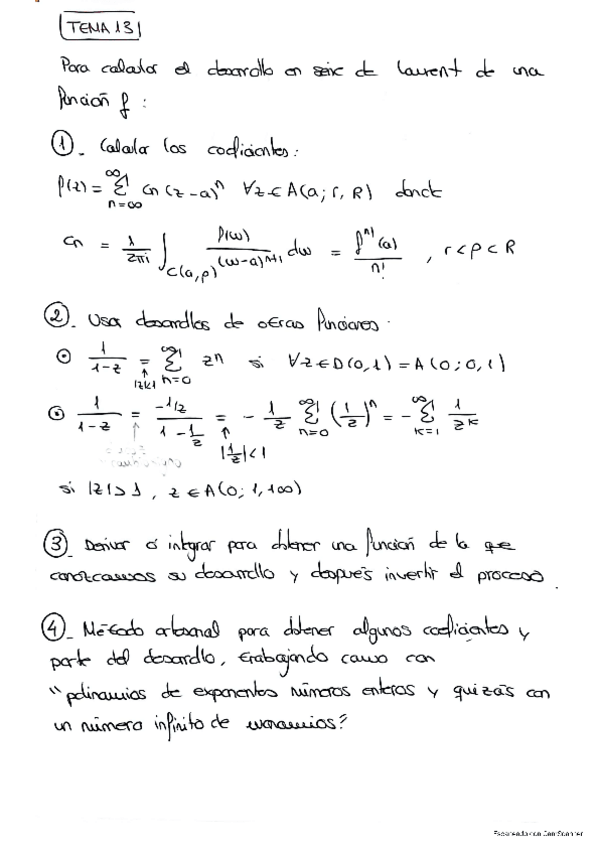 TEMA 13
Para calcular el desarrollo en serie de Laurent de una
función f :
① - Calcular los coeficientes:
f(z) = ∞ Σ n=∞ cn (z-a)^n ∀z ∈ A(a; r, R) donde
cn = 1/2πi ∫_C(a,ρ) f(w)/(w-a)^n+1 dw = f^n)(a)/n! , r<ρ<R
② - Usar desarrollos de otras funciones.
⊙ 1/1-z = ∞ Σ n=0 z^n si ∀z ∈ D(0,1) = A(0; 0, 1)
↑ |z|<1
⊙ 1/1-z = -1/z / 1 - 1/z = - 1/z ∞ Σ n=0 (1/z)^n = - ∞ Σ k=1 1/z^k
↑ ↑ |1/z|<1
si |z|>1 , z ∈ A(0; 1, +∞)
③ - Derivar ó integrar para obtener una función de la que
conozcamos su desarrollo y después invertir el proceso.
④ - Método artesanal para obtener algunos coeficientes y
parte del desarrollo, trabajando como con
"polinomios de exponentes números enteros y quizás con
un número infinito de monomios"
Escaneado con CamScanner